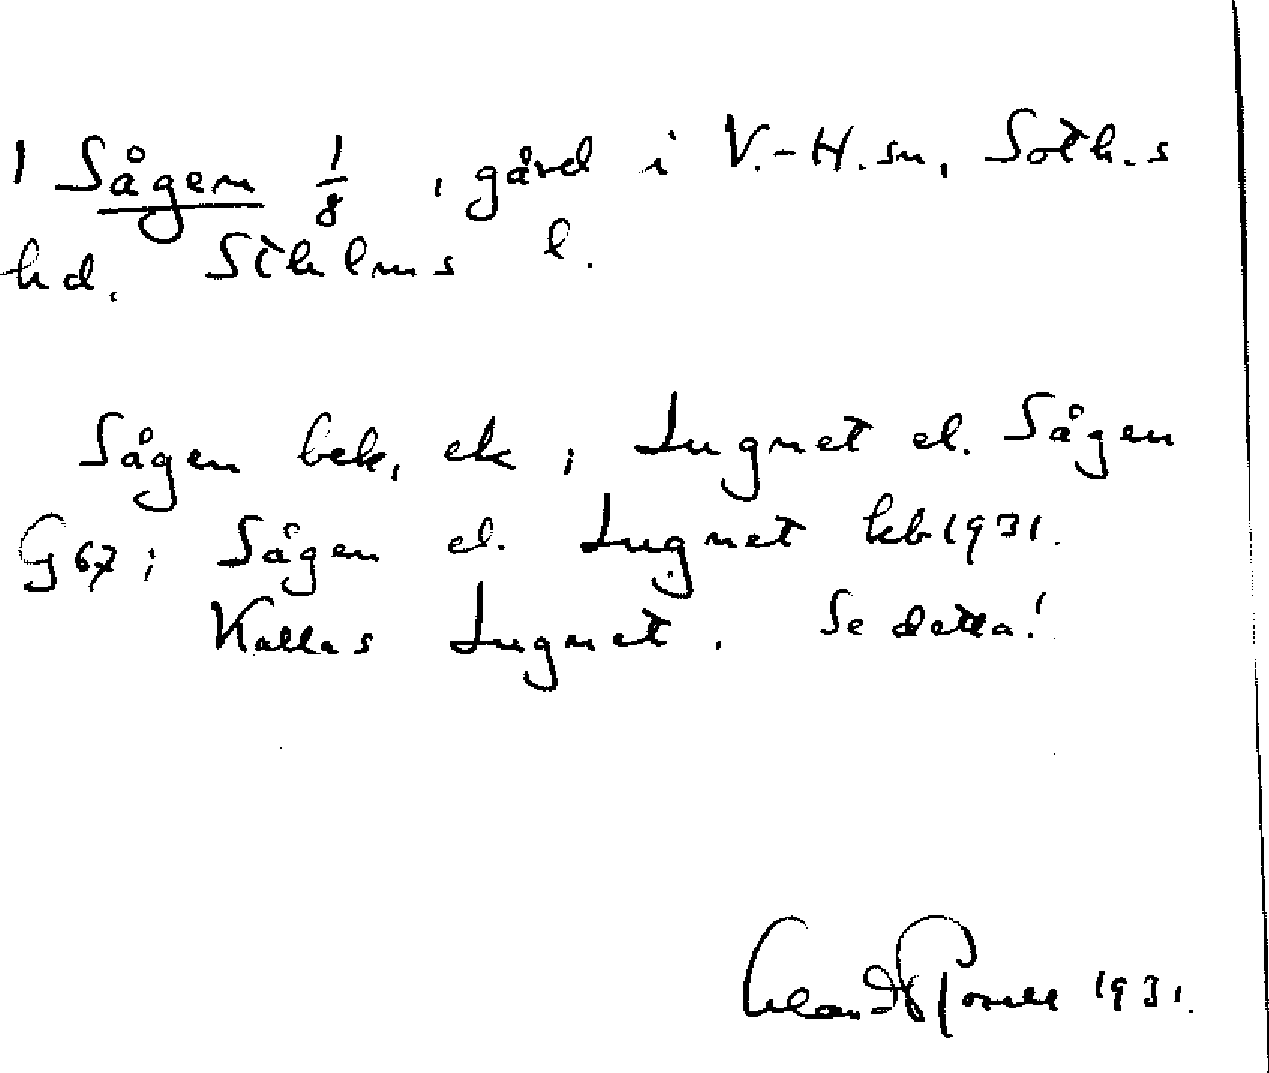 1 Sågen 1/8, gård i V.-H. sn, Soth.s
hd. Sthlms l.
Sågen bek, ek; Lugnet el. Sågen
G 67; Sågen el. Lugnet kb 1931.
Kallas Lugnet. Se detta!
1931.